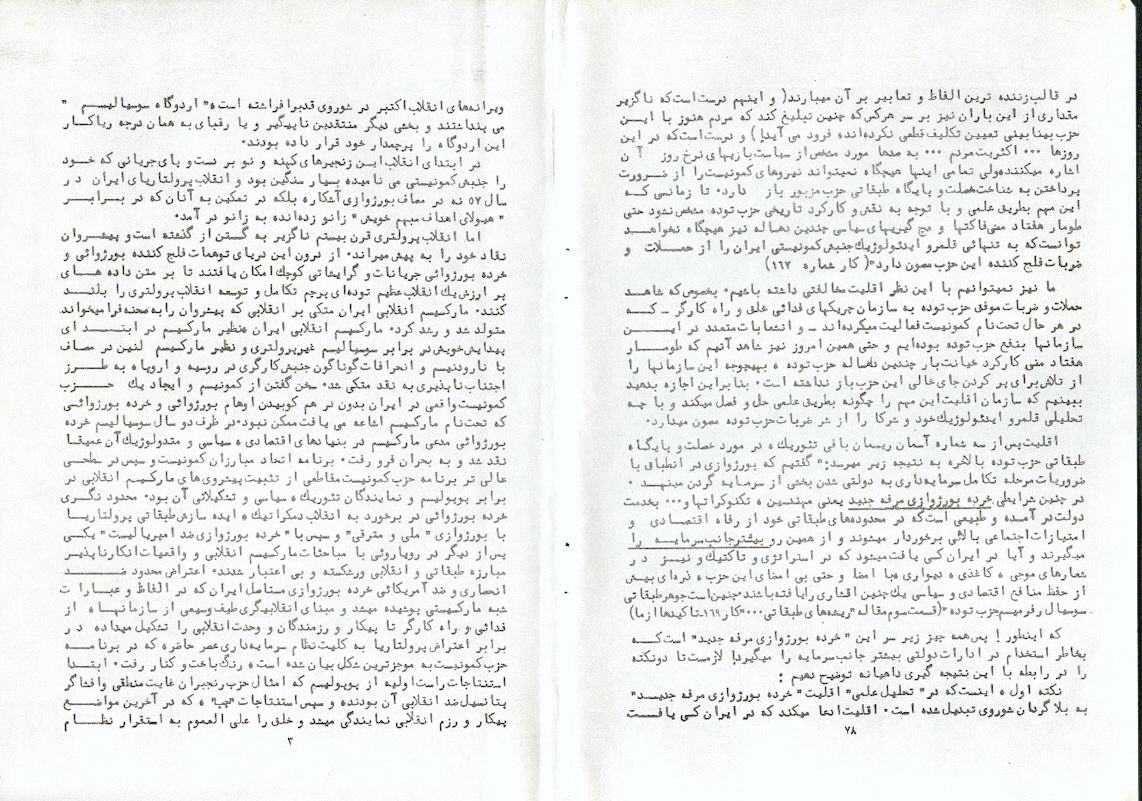 در قالب زننده ترین الفاظ و تعابیر بر آن میبارند( و اینهم درست است که ناگزیر
مقداری از این باران نیز بر سر هرکس که چنین تبلیغ کند که مردم هنوز با ایـــن
حزب بینا بینی تعیین تکلیف قطعی نکرده اند فرود می آید!) و درست است که در این
روزها ۰۰۰ اکثریت مردم ۰۰۰ به صدها مورد مشخص از سیاست بازیهای نرخ روز آن
اشاره میکنند ولی تمامی اینها هیچگاه نمیتواند نیروهای کمونیست را از ضـــرورت
پرداختن به شناخت خصلت و پایگاه طبقاتی حزب مزبور باز دارد۰ تا زمانسی کــه
این مهم بطریق علمی و با توجه به نقش و کارکرد تاریخی حزب توده مشخص نشود حتی
طومار هفتاد منی فاکتها و مچ گیریهای سیاسی چندین دهساله نیز هیچگاه نخواهــد
توانست که به تنهائی قلمرو ایدئولوژیك جنبش کمونیستی ایران را از حمـــلات و
ضربات فلج کننده این حزب مصون دارد"( کار شماره ۱۶۷)
ما نیز نمیتوانیم با این نظر اقلیت مخالفتی داشته باشیم۰ بخصوص که شاهــد
حملات و ضربات موفق حزب توده به سازمان چریکهای فدائی خلق و راه کارگر ــ کــه
در هر حال تحت نام کمونیست فعالیت میکرده اند ــ و انشعابات متعدد در ایــــن
سازمانها بنفع حزب توده بوده ایم و حتی همین امروز نیز شاهد آنیم که طومـــار
هفتاد منی کارکرد خیانت بار چندین دهساله حزب توده ، بهیچوجه این سازمانها را
از تلاش برای پر کردن جای خالی این حزب باز نداشته است۰ بنابراین اجازه بدهید
ببینیم که سازمان اقلیت این مهم را چگونه بطریق علمی حل و فصل میکند و با چــه
تحلیلی قلمرو ایدئولوژیك خود و شرکا را از شر ضربات حزب توده مصون میدارد۰
اقلیت پس از سه شماره آسمان ریسمان بافی تئوریك ، در مورد خصلت و پایگــاه
طبقاتی حزب توده بالاخره به نتیجه زیر میرسد:" گفتیم که بورژوازی در انطباق با
ضروریات مرحله تکامل سرمایه داری به دولتی شدن بخشی از سرمایه گردن مینهـــد ۰
در چنین شرایطی خرده بورژوازی مرفه جدید یعنی مهندسین ، تکنوکراتها و۰۰۰ بخدمت
دولت در آمده و طبیعی است که در محدوده های طبقاتی خود از رفاه اقتصـــادی و
امتیازات اجتماعی بالائی برخوردار میشوند و از همین رو بیشتر جانب سرمایـــه را
میگیرند و آیا در ایران کسی یافت میشود که در استراتژی و تاکتیك و نیـــز در
شعارهای موجی ، کاغذی ، دیواری ، با امضا و حتی بی امضای این حزب ، ذره ای بیش
از حفظ منافع اقتصادی و سیاسی یك چنین اقشاری را یافته باشد چنین است جوهر طبقاتی
سوسیال رفرمیسم حزب توده "(قسمت سوم مقاله "ریشه های طبقاتی ۰۰۰" کار ۱۶۹ـ تاکیدها از ما)
که اینطور! پس همه چیز زیر سر این "خرده بورژوازی مرفه جدید" است کـــه
بخاطر استخدام در ادارات دولتی بیشتر جانب سرمایه را میگیرد! لازمست تا دونکته
را در رابطه با این نتیجه گیری داهیانه توضیح دهیم :
نکته اول ، اینست که در" تحلیل علمی" اقلیت" خرده بورژوازی مرفه جدیــد"
به بلا گردان شوروی تبدیل شده است۰ اقلیت ادعا میکند که در ایران کسی یافـــت
۷۸
ویرانه های انقلاب اکتبر در شوروی قد برافراشته است ،" اردوگاه سوسیالیســم "
می پنداشتند و بخشی دیگر منتقدین ناپیگیر و یا رقبای به همان درجه ریاکــار
این اردوگاه را پرچمدار خود قرار داده بودند۰
در ابتدای انقلاب ایــن زنجیرهای کهنه و نو بر دست و پای جریانی که خــود
را جنبش کمونیستی می نامیده بسیار سنگین بود و انقلاب پرولتاریای ایران در
سال ۵۷ نه در مصاف بورژوازی آشکاره بلکه در تمکین به آنان که در بـــرابــر
" هیولای اهداف مبهم خویش " زانو زده اند به زانو در آمد۰
اما انقلاب پرولتری قرن بیستم ناگزیر به گسستن از گذشته است و پیشــروان
نقاد خود را به پیش میراند۰ از درون این دریای توهمات فلج کننده بورژوائی و
خرده بورژوائی جریانات و گرایشاتی کوچك امکان یافتند تا بر متن داده هـــای
پر ارزش یك انقلاب عظیم توده ای پرچم تکامل و توسعه انقلاب پرولتری را بلنـــد
کنند۰ مارکسیسم انقلابی ایران متکی بر انقلابی که پیشروان را به صحنه فرا میخواند
متولد شد و رشد کرد۰ مارکسیسم انقلابی ایران ، نظیر مارکسیسم در ابتـــدای
پیدایش خویش در برابر سوسیالیسم غیرپرولتری و نظیر مارکسیسم لنین در مصــاف
با نارودنیسم و انحرافات گوناگون جنبش کارگری در روسیه و اروپا ، به طــرز
اجتناب ناپذیری به نقد متکی شد۰ سخن گفتن از کمونیسم و ایجاد یك حـــزب
کمونیست واقعی در ایران بدون در هم کوبیدن اوهام بورژوائی و خرده بورژوائــی
که تحت نام مارکسیسم اشاعه می یافت ممکن نبود۰ در ظرف دو سال سوسیالیسم خرده
بورژوائی مدعی مارکسیسم در بنیادهای اقتصادی ، سیاسی و متدولوژیك آن عمیقــا
نقد شد و به بحران فرو رفت۰ برنامه اتحاد مبارزان کمونیست و سپس در سطحــی
عالی تر برنامه حزب کمونیست مقاطعی از تثبیت پیشروی های مارکسیسم انقلابی در
برابر پوپولیسم و نمایندگان تئوریك ، سیاسی و تشکیلاتی آن بود۰ محدود نگــری
خرده بورژوائی در برخورد به انقلاب دمکراتیك ، ایده سازش طبقاتی پرولتاریــا
با بورژوازی " ملی و مترقی" و سپس با " خرده بورژوازی ضد امپریالیست" یکسی
پس از دیگر در رویاروئی با مباحثات مارکسیسم انقلابی و واقعیات انکارناپذیــر
مبارزه طبقاتی و انقلابی ورشکسته و بی اعتبار شدند۰ اعتراض محدود ضــــد
انحصاری و ضد آمریکائی خرده بورژوازی مستاصل ایران که در الفاظ و عبـارات
شبه مارکسیستی پوشیده میشد و مبنای انقلابیگری طیف وسیعی از سازمانهــا ، از
فدائی و راه کارگر تا پیکار و رزمندگان و وحدت انقلابی را تشکیل میداد ، در
برابر اعتراض پرولتاریا به کلیت نظام سرمایه داری عصر حاضر ، که در برنامــه
حزب کمونیست به موجزترین شکل بیان شده است ، رنگ باخت و کنار رفت۰ ابتــدا
استنتاجات راست اولیه از پوپولیسم که امثال حزب رنجبران غایت منطقی و افشاگر
پتانسیل ضد انقلابی آن بودند ، و سپس استنتاجات "چپ" ، که در آخرین مواضــع
پیکار و رزم انقلابی نمایندگی میشد و خلق را علی العموم به استقرار نظـــام
۳